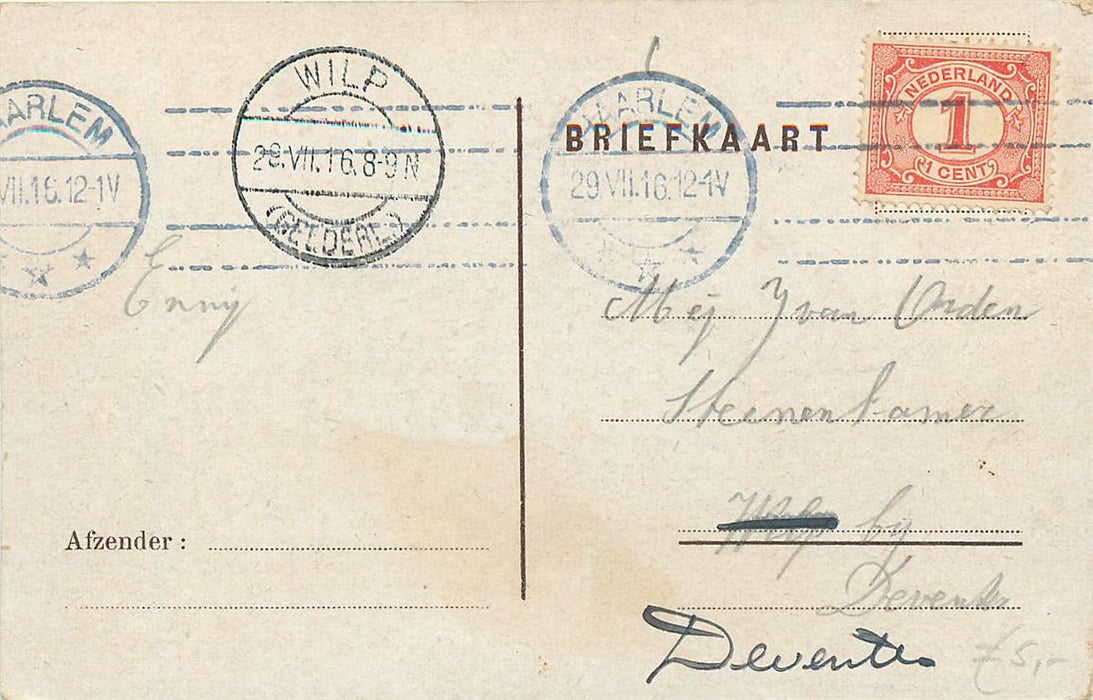 HAARLEM
VII.16.12-1V
WILP
29.VII.16.8-9N
(GELDERL.)
HAARLEM
29 VII.16.12-1V
NEDERLAND
1
1 CENT
BRIEFKAART
Enny
Mej Y van Orden
Steenenkamer
Wilp by
Deventer
Deventer
Afzender :
£5,-